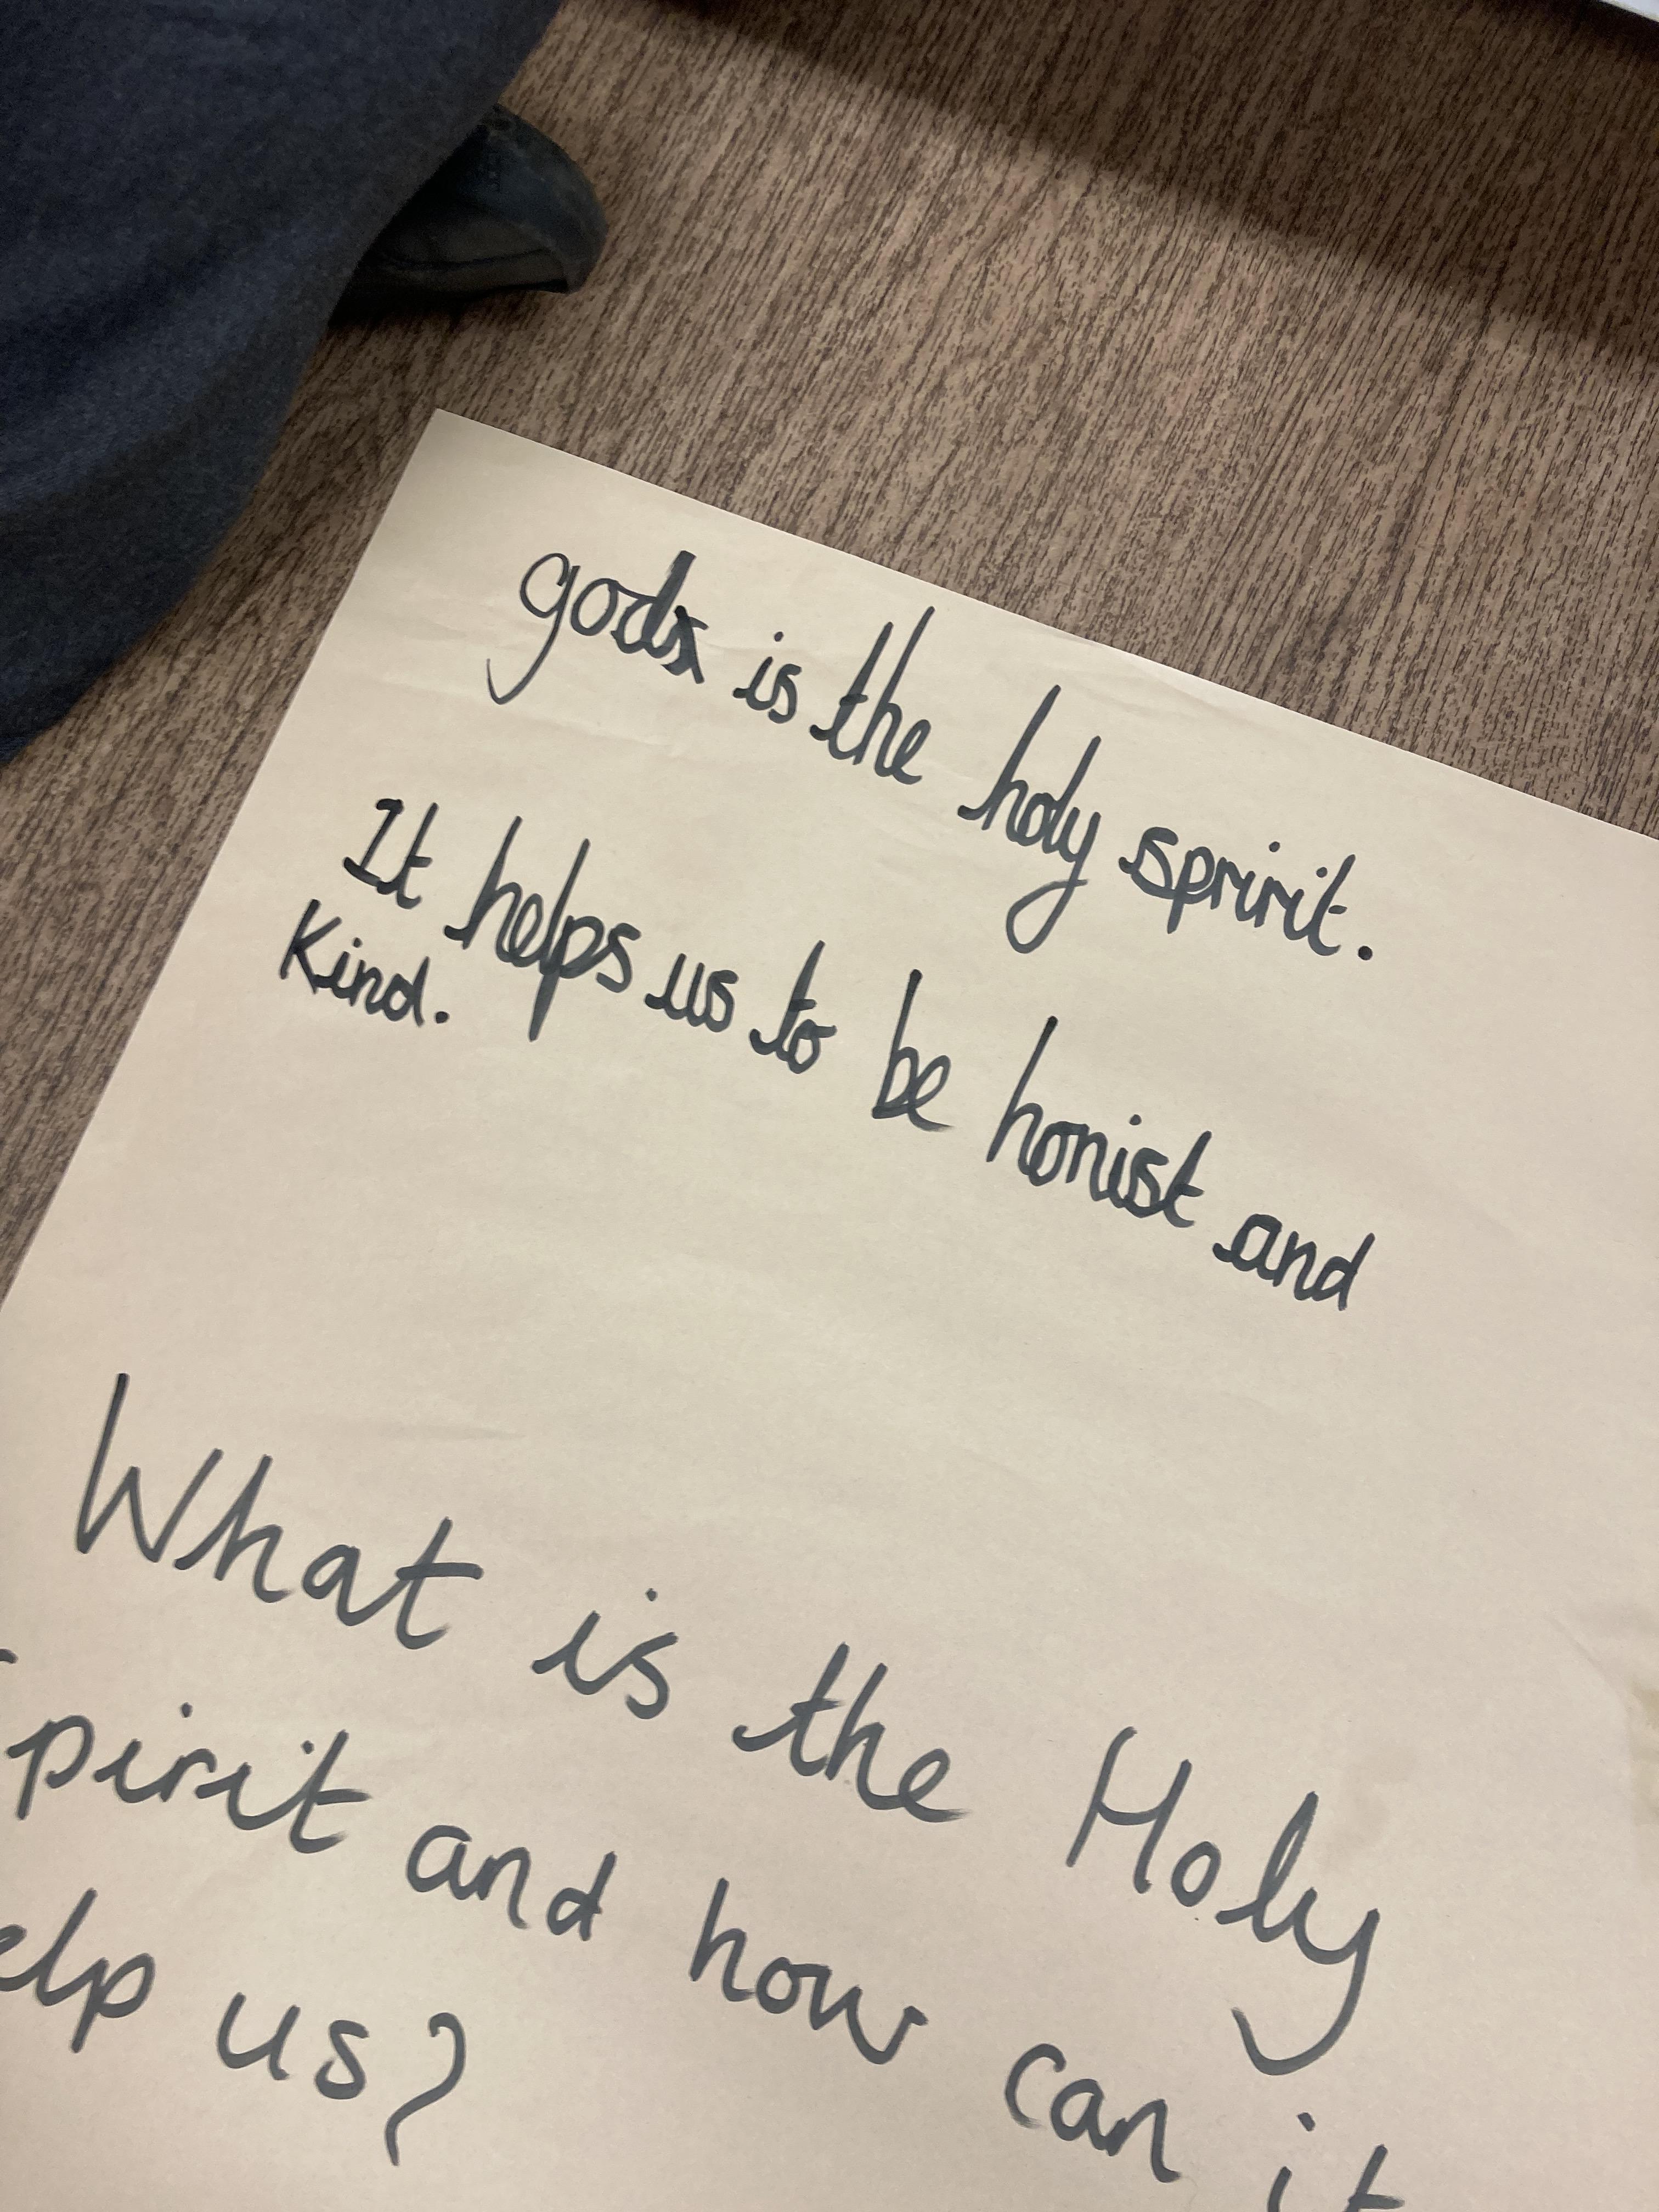 god is the holy spririt.
It helps us to be honist and
Kind.
What is the Holy
pirit and how can it
elp us?